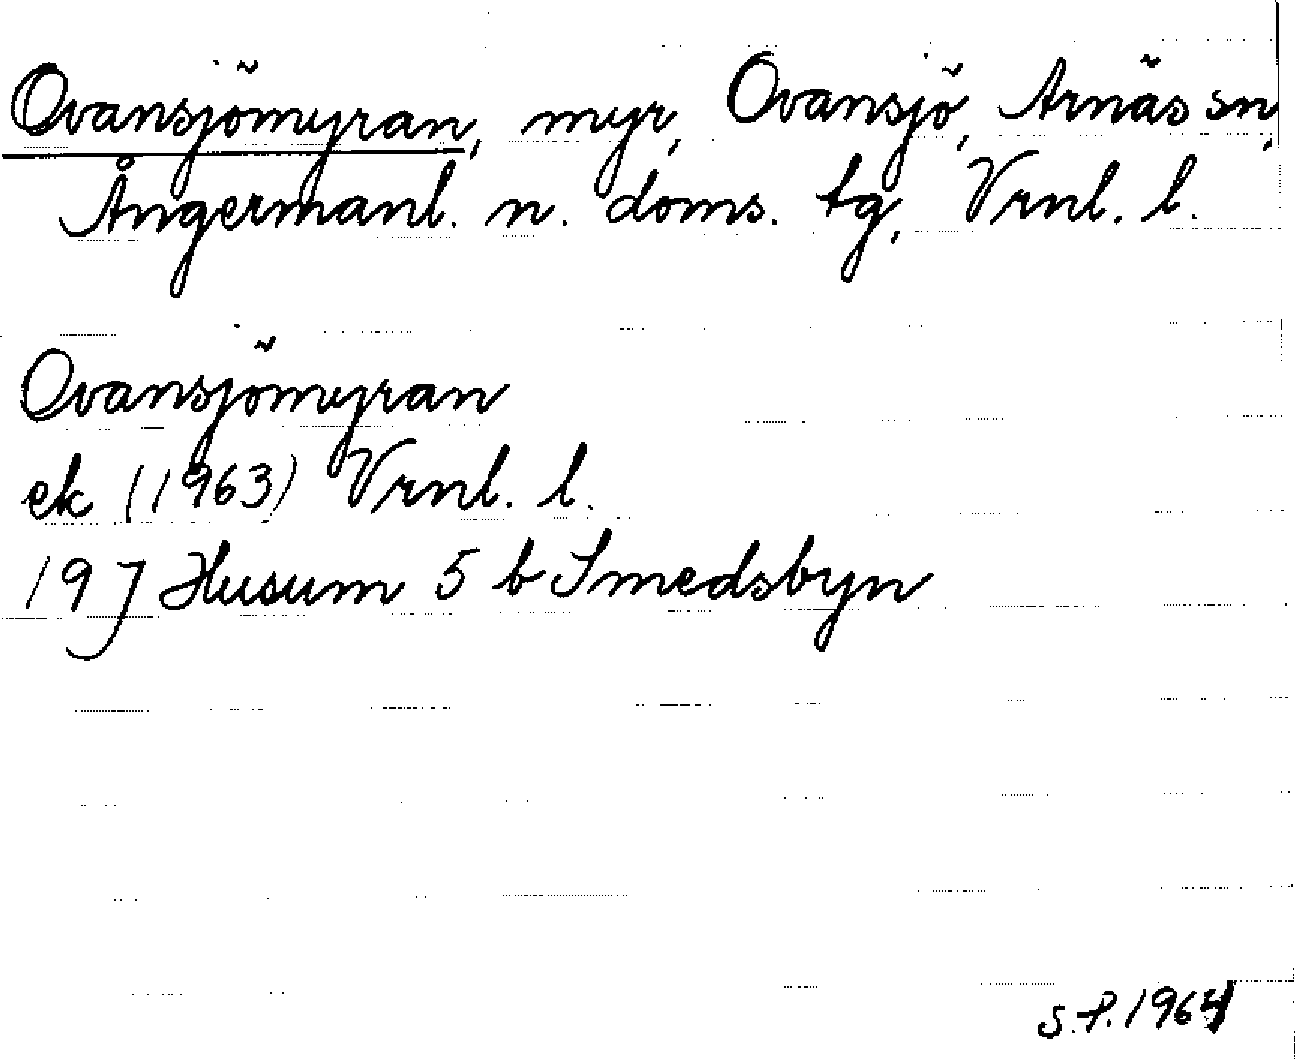 Ovansjömyran, myr, Ovansjö, Arnäs sn,
Ångermanl. n. doms. tg, Vrnl. l.
Ovansjömyran
ek (1963) Vrnl. l.
19 J Husum 5 b Smedsbyn
S.P. 1964